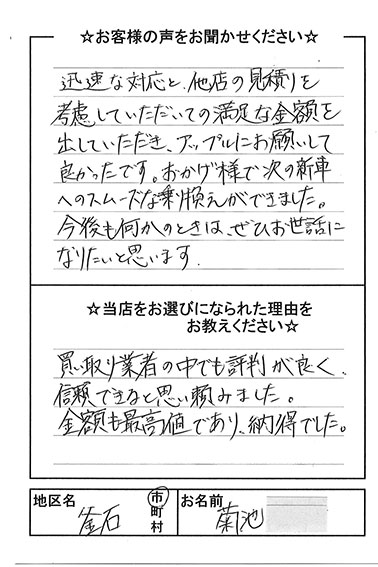 ☆お客様の声をお聞かせください☆
迅速な対応と、他店の見積りを
考慮していただいての満足な金額を
出していただき、アップルにお願いして
良かったです。おかげ様で次の新車
へのスムーズな乗り換えができました。
今後も何かのときは、ぜひお世話に
なりたいと思います.
☆当店をお選びになられた理由を
お教えください☆
買い取り業者の中でも評判が良く、
信頼できると思い頼みました。
金額も最高値であり、納得でした。
地区名 釜石 市町村 お名前 菊池